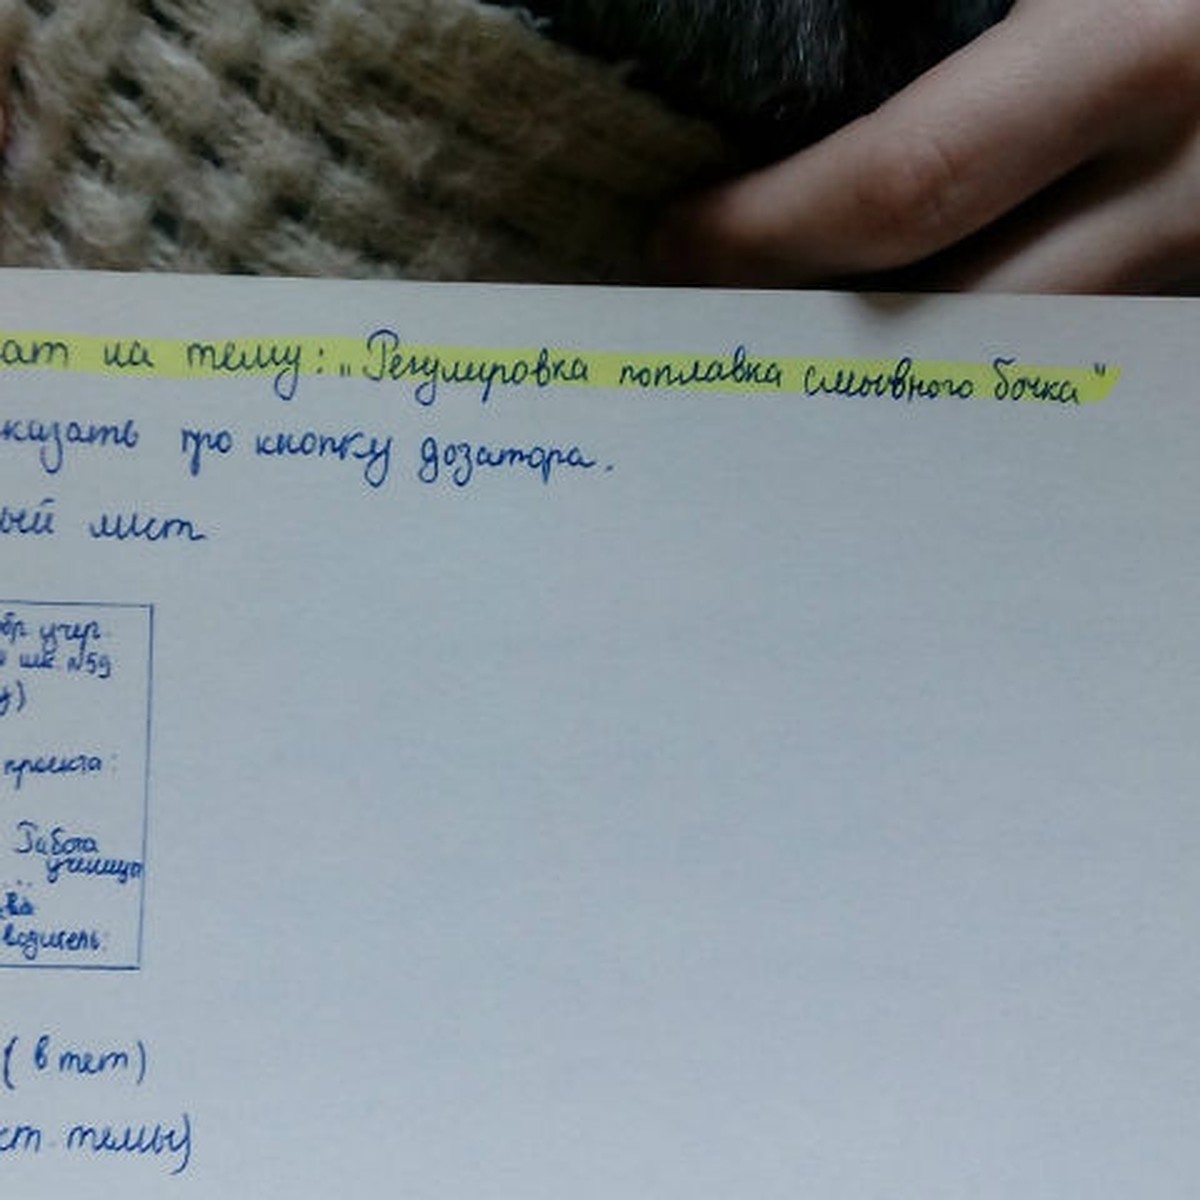 ат на тему: „Регулировка поплавка смывного бочка"
казать про кнопку дозатора.
ый лист
обр учер.
шк. №59
у)
проекта:
Работа
ученицы
ва
водитель:
(в тет)
ст темы)